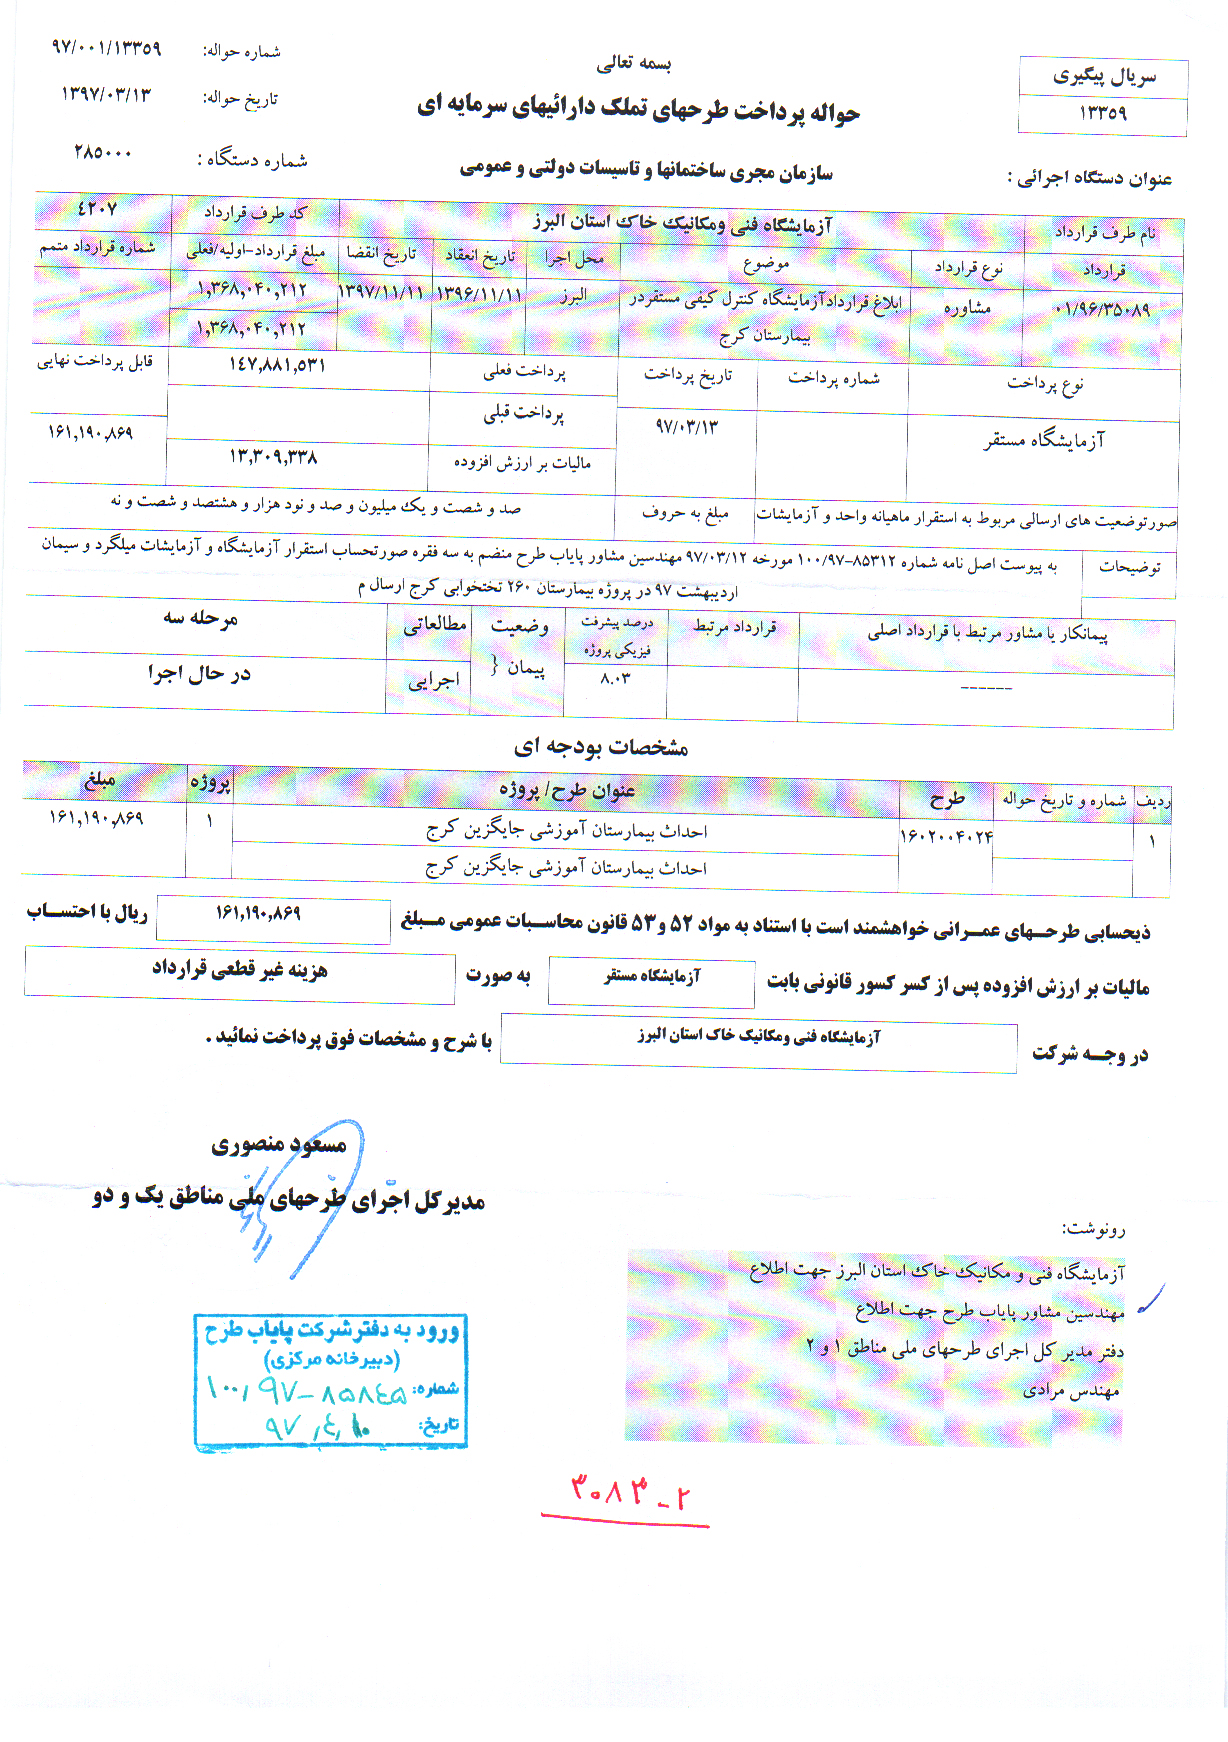 بسمه تعالی
سریال پیگیری
۱۳۳۵۹
شماره حواله: ۹۷/۰۰۱/۱۳۳۵۹
تاریخ حواله: ۱۳۹۷/۰۳/۱۳
حواله پرداخت طرحهای تملک دارائیهای سرمایه ای
عنوان دستگاه اجرائی : سازمان مجری ساختمانها و تاسیسات دولتی و عمومی
شماره دستگاه : ۲۸۵۰۰۰
نام طرف قرارداد آزمایشگاه فنی ومکانیک خاک استان البرز کد طرف قرارداد ۴۲۰۷
قرارداد نوع قرارداد موضوع محل اجرا تاریخ انعقاد تاریخ انقضا مبلغ قرارداد-اولیه/فعلی شماره قرارداد متمم
۰۱/۹۶/۳۵۰۸۹ مشاوره ابلاغ قرارداد آزمایشگاه کنترل کیفی مستقردر البرز ۱۳۹۶/۱۱/۱۱ ۱۳۹۷/۱۱/۱۱ ۱,۳۶۸,۰۴۰,۲۱۲
بیمارستان کرج ۱,۳۶۸,۰۴۰,۲۱۲
نوع پرداخت شماره پرداخت تاریخ پرداخت پرداخت فعلی ۱۴۷,۸۸۱,۵۳۱ قابل پرداخت نهایی
آزمایشگاه مستقر ۹۷/۰۳/۱۳ پرداخت قبلی ۱۶۱,۱۹۰,۸۶۹
مالیات بر ارزش افزوده ۱۳,۳۰۹,۳۳۸
صورتوضعیت های ارسالی مربوط به استقرار ماهیانه واحد و آزمایشات مبلغ به حروف صد و شصت و یک میلیون و صد و نود هزار و هشتصد و شصت و نه
توضیحات به پیوست اصل نامه شماره ۸۵۳۱۲-۱۰۰/۹۷ مورخه ۹۷/۰۳/۱۲ مهندسین مشاور پایاب طرح منضم به سه فقره صورتحساب استقرار آزمایشگاه و آزمایشات میلگرد و سیمان
اردیبهشت ۹۷ در پروژه بیمارستان ۲۶۰ تختخوابی کرج ارسال م
پیمانکار یا مشاور مرتبط با قرارداد اصلی قرارداد مرتبط درصد پیشرفت فیزیکی پروژه وضعیت پیمان { مطالعاتی مرحله سه
------ ۸.۰۳ اجرایی در حال اجرا
مشخصات بودجه ای
ردیف شماره و تاریخ حواله طرح عنوان طرح/ پروژه پروژه مبلغ
۱ ۱۶۰۲۰۰۴۰۲۴ احداث بیمارستان آموزشی جایگزین کرج ۱ ۱۶۱,۱۹۰,۸۶۹
احداث بیمارستان آموزشی جایگزین کرج
ذیحسابی طرحــهای عمــرانی خواهشمند است با استناد به مواد ۵۲ و ۵۳ قانون محاسبات عمومی مــبلغ ۱۶۱,۱۹۰,۸۶۹ ریال با احتســاب
مالیات بر ارزش افزوده پس از کسر کسور قانونی بابت آزمایشگاه مستقر به صورت هزینه غیر قطعی قرارداد
در وجــه شرکت آزمایشگاه فنی ومکانیک خاک استان البرز با شرح و مشخصات فوق پرداخت نمائید .
مسعود منصوری
مدیرکل اجرای طرحهای ملی مناطق یک و دو
رونوشت:
آزمایشگاه فنی و مکانیک خاک استان البرز جهت اطلاع
مهندسین مشاور پایاب طرح جهت اطلاع
دفتر مدیر کل اجرای طرحهای ملی مناطق ۱ و ۲
مهندس مرادی
ورود به دفتر شرکت پایاب طرح
(دبیرخانه مرکزی)
شماره: ۱۰۰/۹۷-۸۵۸۴۵
تاریخ: ۹۷/۴/۱۰
۳۰۸۳-۲